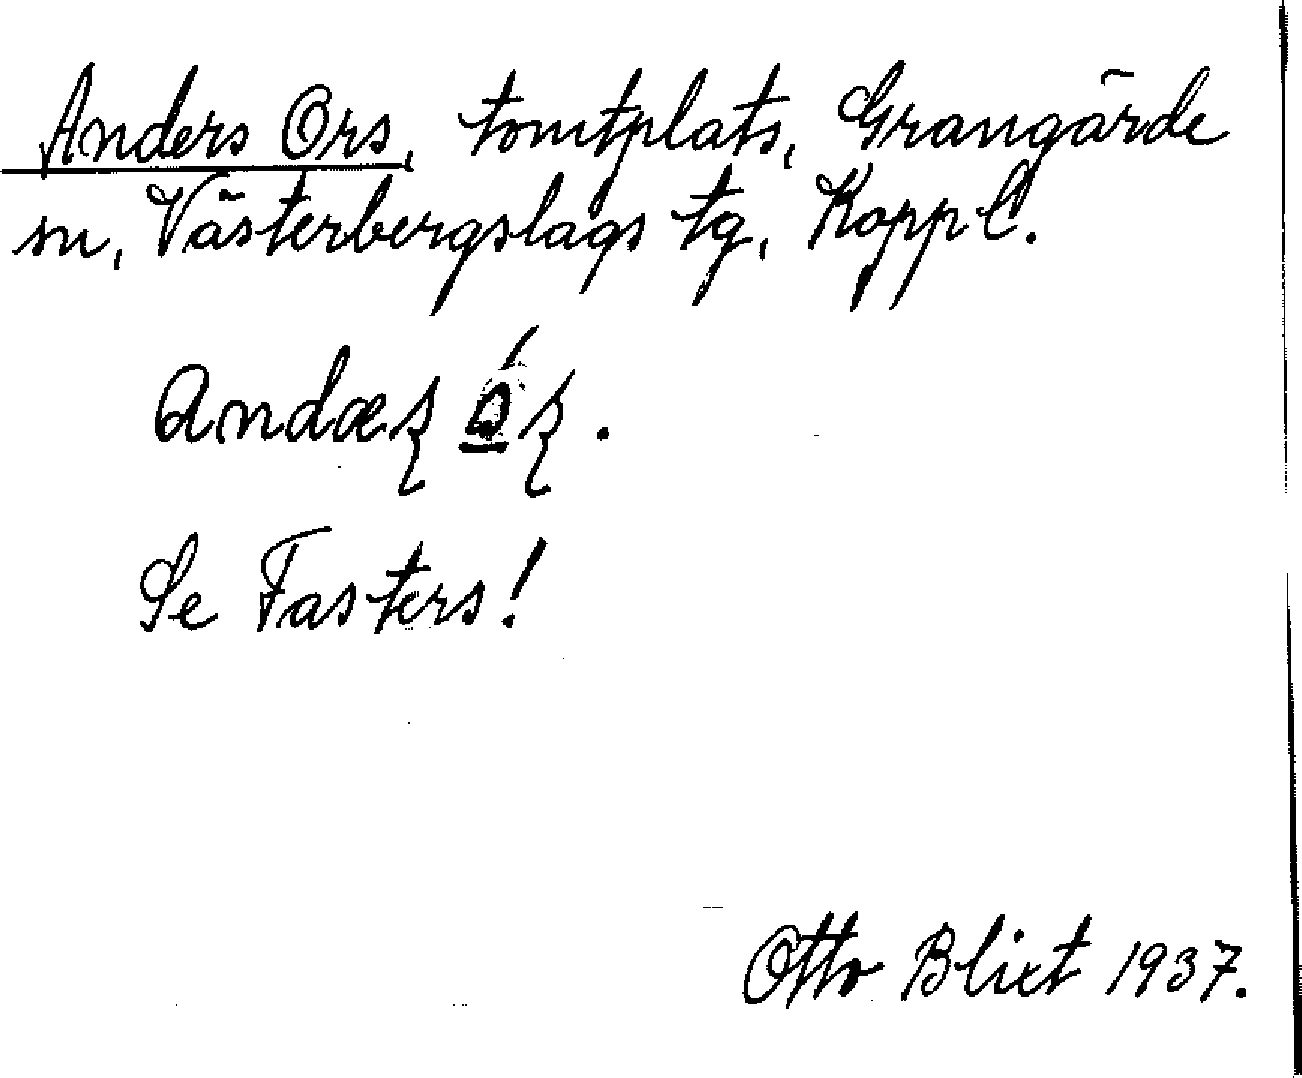 Anders Ors, tomtplats, Grangärde
sn, Västerbergslags tg, Koppl.
Andæʂ
Se Fasters!
Otto Blixt 1937.